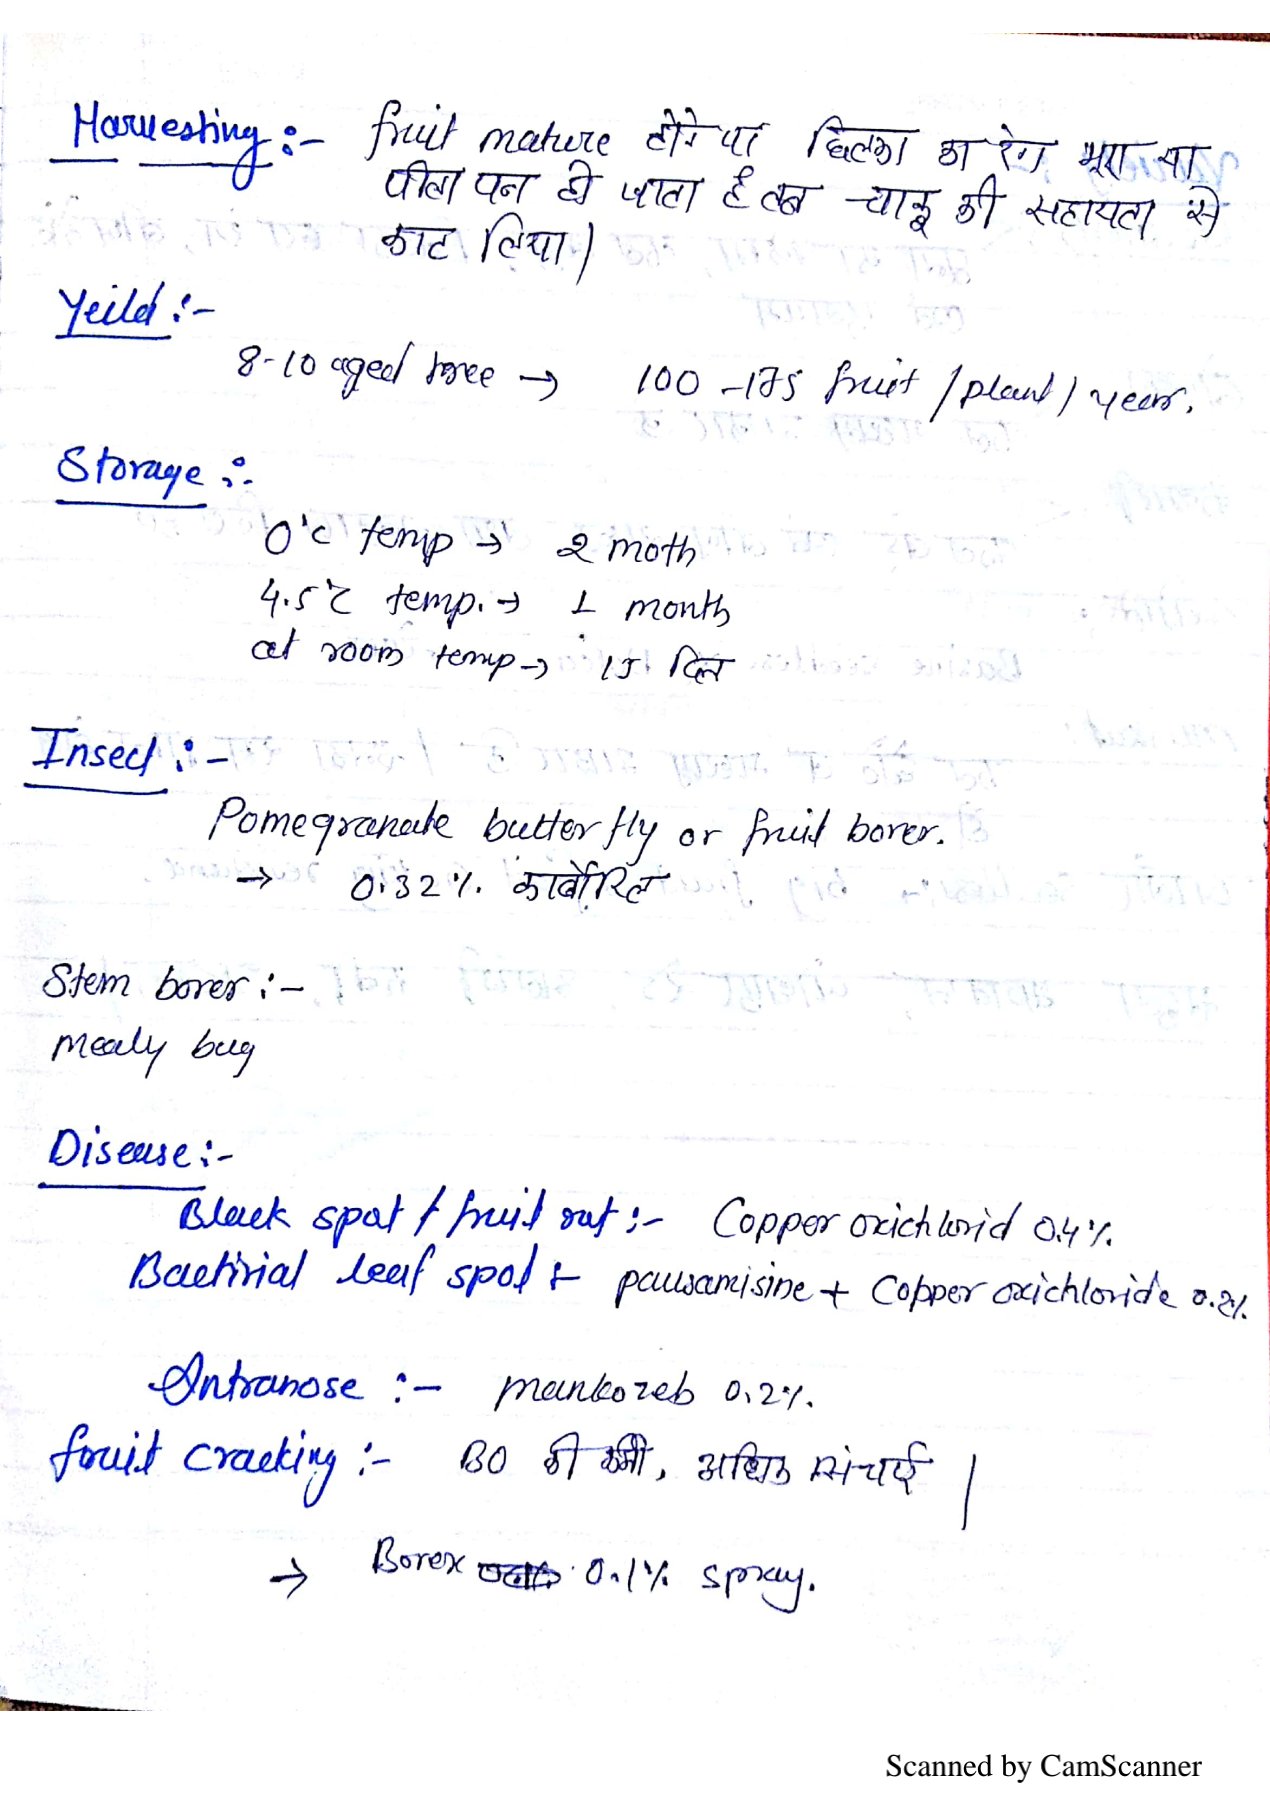 Harvesting :- fruit mature होने पर छिलका का रंग भूरा या
पीला पन हो जाता है तब चाकू की सहायता से
काट लिया।
Yeild :-
8-10 aged tree → 100-175 fruit / plant / year.
Storage :-
0°c temp → 2 moth
4.5°c temp. → 1 month
at room temp → 15 दिन
Insect :-
Pomegranate butter fly or fruit borer.
→ 0.32%. कार्बोरिल
Stem borer :-
mealy bug
Disease :-
Black spot / fruit rot :- Copper oxichlorid 0.4%.
Bactirial leaf spot :- pausamisine + Copper oxichloride 0.2%.
Antranose :- mankozeb 0.2%.
fruit cracking :- BO की कमी, अधिक सिंचाई |
→ Borex 0.1% spray.
Scanned by CamScanner